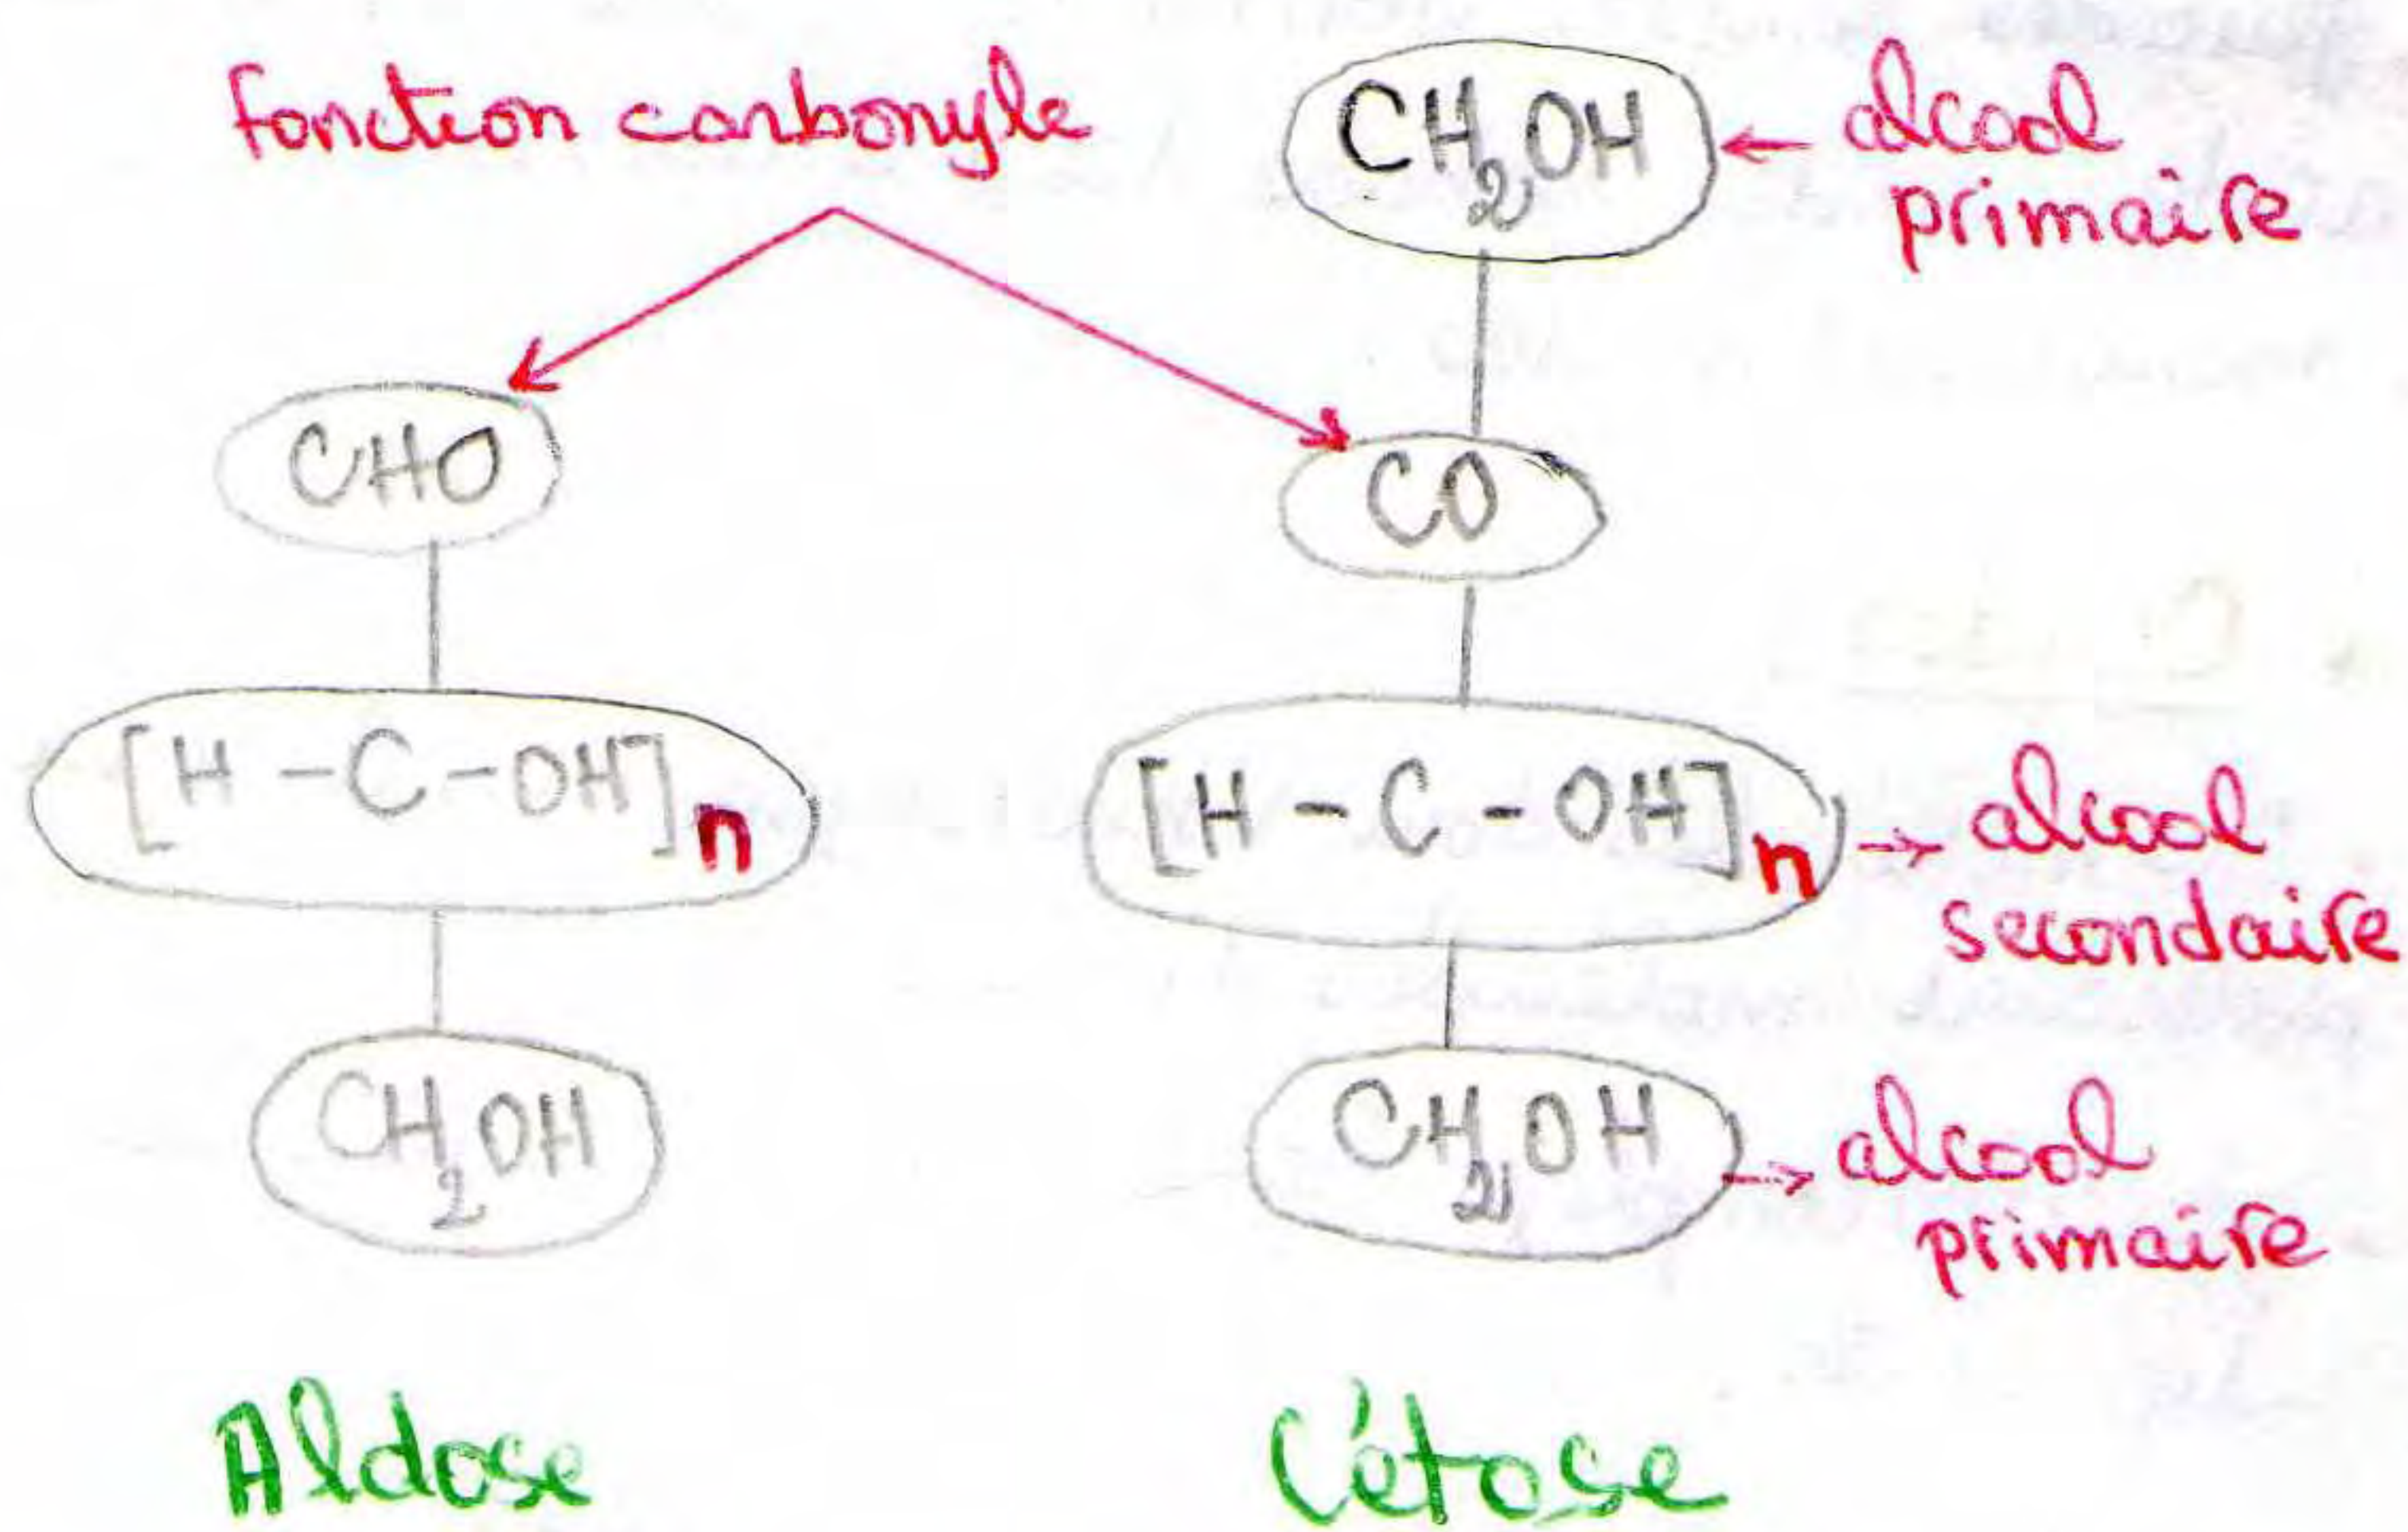 fonction carbonyle
CH2OH ← alcool
primaire
CHO
CO
[H - C - OH]n
[H - C - OH]n → alcool
secondaire
CH2OH
CH2OH → alcool
primaire
Aldose
Cétose